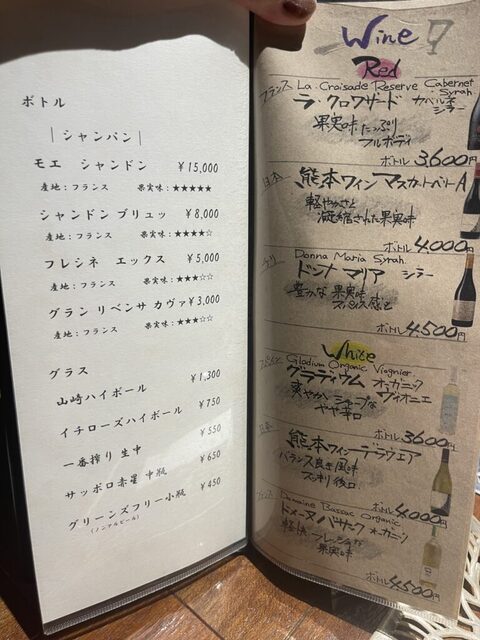 ボトル
｜シャンパン｜
モエ シャンドン ¥15,000
産地:フランス 果実味:★★★★★
シャンドン ブリュッ ¥8,000
産地:フランス 果実味:★★★★☆
フレシネ エックス ¥5,000
産地:フランス 果実味:★★★☆☆
グラン リベンサ カヴァ ¥3,000
産地:フランス 果実味:★★★☆☆
グラス
山崎ハイボール ¥1,300
イチローズハイボール ¥750
一番搾り 生中 ¥550
サッポロ赤星 中瓶 ¥650
グリーンズフリー小瓶 ¥450
(ノンアルビール)
Wine
Red
フランス La Croisade Reserve Cabernet Syrah
ラ・クロワザード カベルネ シラー
果実味たっぷり
フルボディ
ボトル 3,600円
日本 熊本ワイン マスカットベリーA
軽やかさと
凝縮された果実味
ボトル 4,000円
チリ Donna Maria Syrah
ドンナ マリア シラー
豊かな 果実味
スパイス感と
ボトル 4,500円
White
スペイン Gladium Organic Viognier
グラディウム オーガニック ヴィオニエ
爽やか シャープな
やや辛口
ボトル 3600円
日本 熊本ワイン デラウェア
バランス良き風味
スッキリ 後口
ボトル 4,000円
フランス Domaine Bassac Organic
ドメーヌ バサック オーガニック
軽快 フレッシュな
果実味
ボトル 4,500円